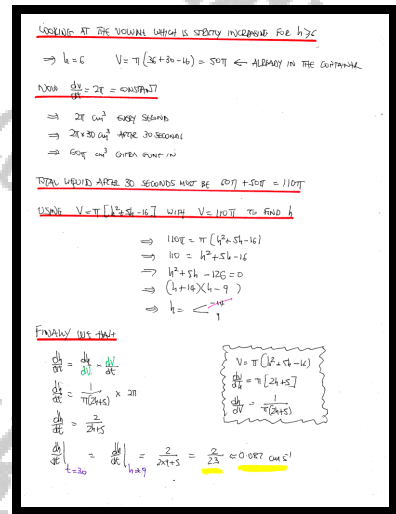 LOOKING AT THE VOLUME WHICH IS STRICTLY INCREASING FOR h≥6
⇒ h=6 V= π(36+30-16) = 50π ← ALREADY IN THE CONTAINER
NOW dv/dt = 2π = CONSTANT
⇒ 2π cm³ EVERY SECOND
⇒ 2π×30 cm³ AFTER 30 SECONDS
⇒ 60π cm³ IN
TOTAL LIQUID AFTER 30 SECONDS MUST BE 60π +50π = 110π
USING V=π[h²+5h-16] WITH V=110π TO FIND h
⇒ 110π = π[h²+5h-16]
⇒ 110 = h²+5h-16
⇒ h²+5h-126=0
⇒ (h+14)(h-9)
⇒ h= < -14
9
FINALLY WE HAVE
dh/dt = dh/dV × dV/dt
dh/dt = 1/π(2h+5) × 2π
dh/dt = 2/2h+5
dh/dt | t=30 = dh/dt | h=9 = 2/2×9+5 = 2/23 ≈ 0.087 cm s⁻¹
V= π(h²+5h-16)
dv/dh = π[2h+5]
dh/dV = 1/π(2h+5)